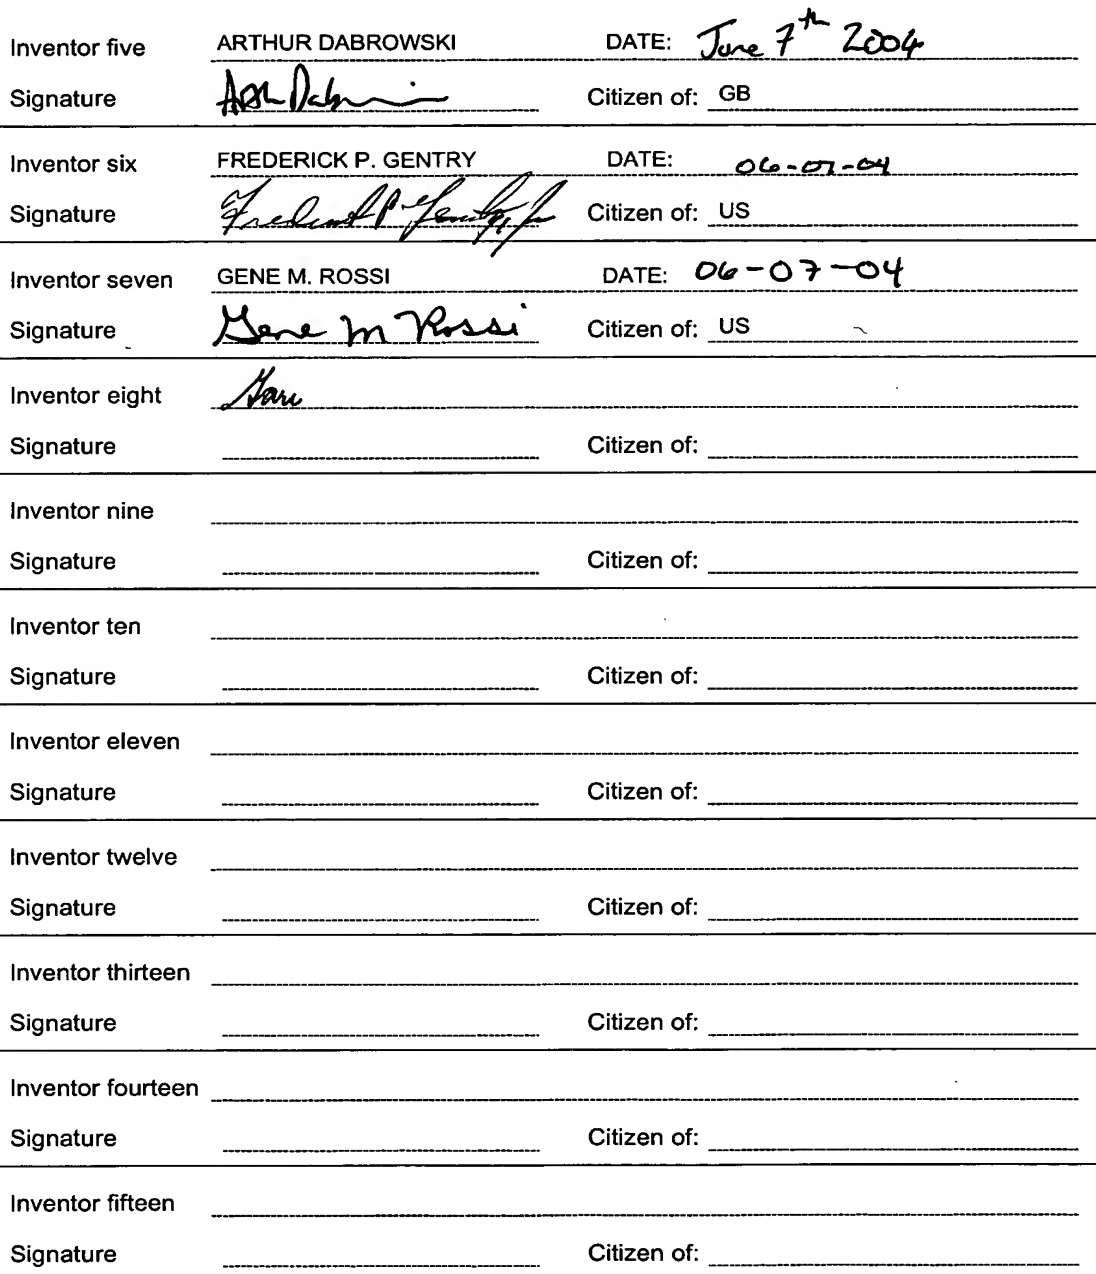 Inventor five ARTHUR DABROWSKI DATE: June 7th 2004
Signature Citizen of: GB
Inventor six FREDERICK P. GENTRY DATE: 06-07-04
Signature Frederick P. Gentry, Jr Citizen of: US
Inventor seven GENE M. ROSSI DATE: 06-07-04
Signature Gene M Rossi Citizen of: US
Inventor eight
Signature Citizen of:
Inventor nine
Signature Citizen of:
Inventor ten
Signature Citizen of:
Inventor eleven
Signature Citizen of:
Inventor twelve
Signature Citizen of:
Inventor thirteen
Signature Citizen of:
Inventor fourteen
Signature Citizen of:
Inventor fifteen
Signature Citizen of: